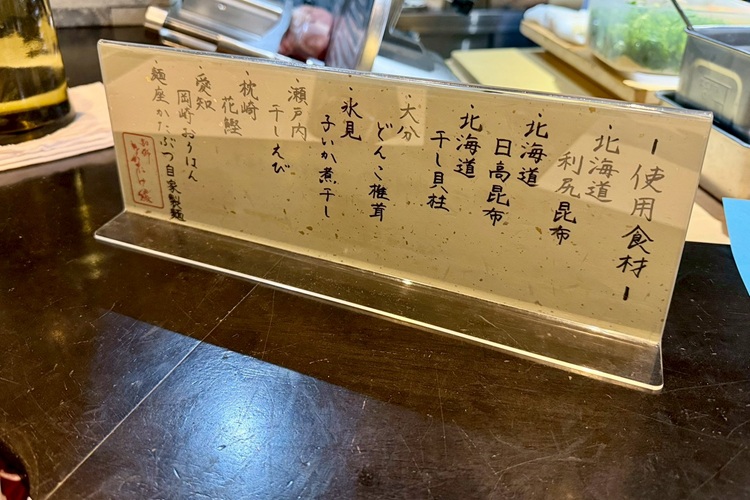 ー使用食材ー
・北海道
利尻昆布
・北海道
日高昆布
・北海道
干し貝柱
・大分
どんこ椎茸
・氷見
子いか煮干し
・瀬戸内
干しえび
・枕崎
花鰹
・愛知
岡崎おうはん
・麺座かたぶつ自家製麺